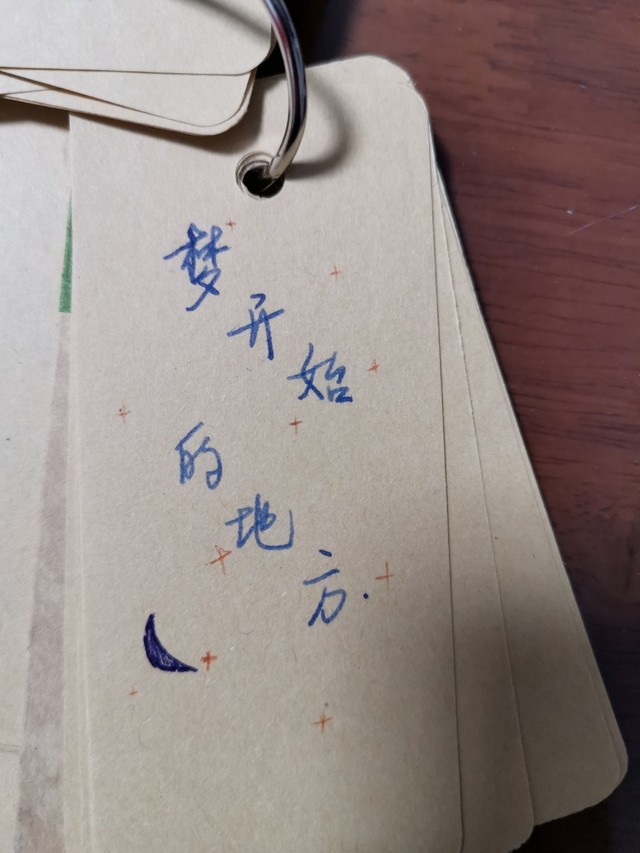 梦开始
的地方.